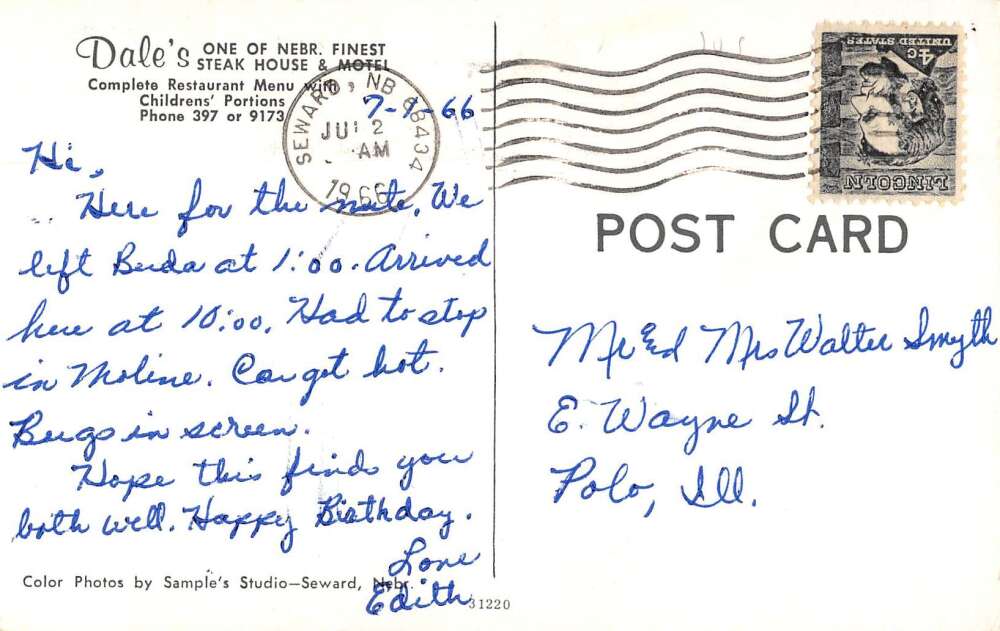 Dale's ONE OF NEBR. FINEST
STEAK HOUSE & MOTEL
Complete Restaurant Menu with
Childrens' Portions
Phone 397 or 9173
SEWARD, NB 68434
JUL 2
AM
1966
7-1-66
Hi,
Here for the nite. We
left Buda at 1:00. Arrived
here at 10:00. Had to stop
in Moline. Car got hot.
Bugs in screen.
Hope this finds you
both well. Happy Birthday.
Love
Edith
Color Photos by Sample's Studio—Seward, Nebr.
31220
4c
UNITED STATES
LINCOLN
POST CARD
Mr and Mrs Walter Smyth
E. Wayne St.
Polo, Ill.